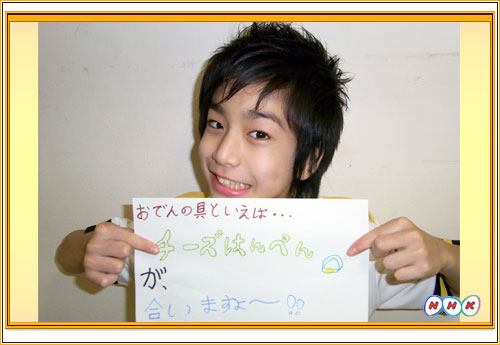 おでんの具といえば・・・
チーズはんぺん
が、
合いますよ〜!!
NHK